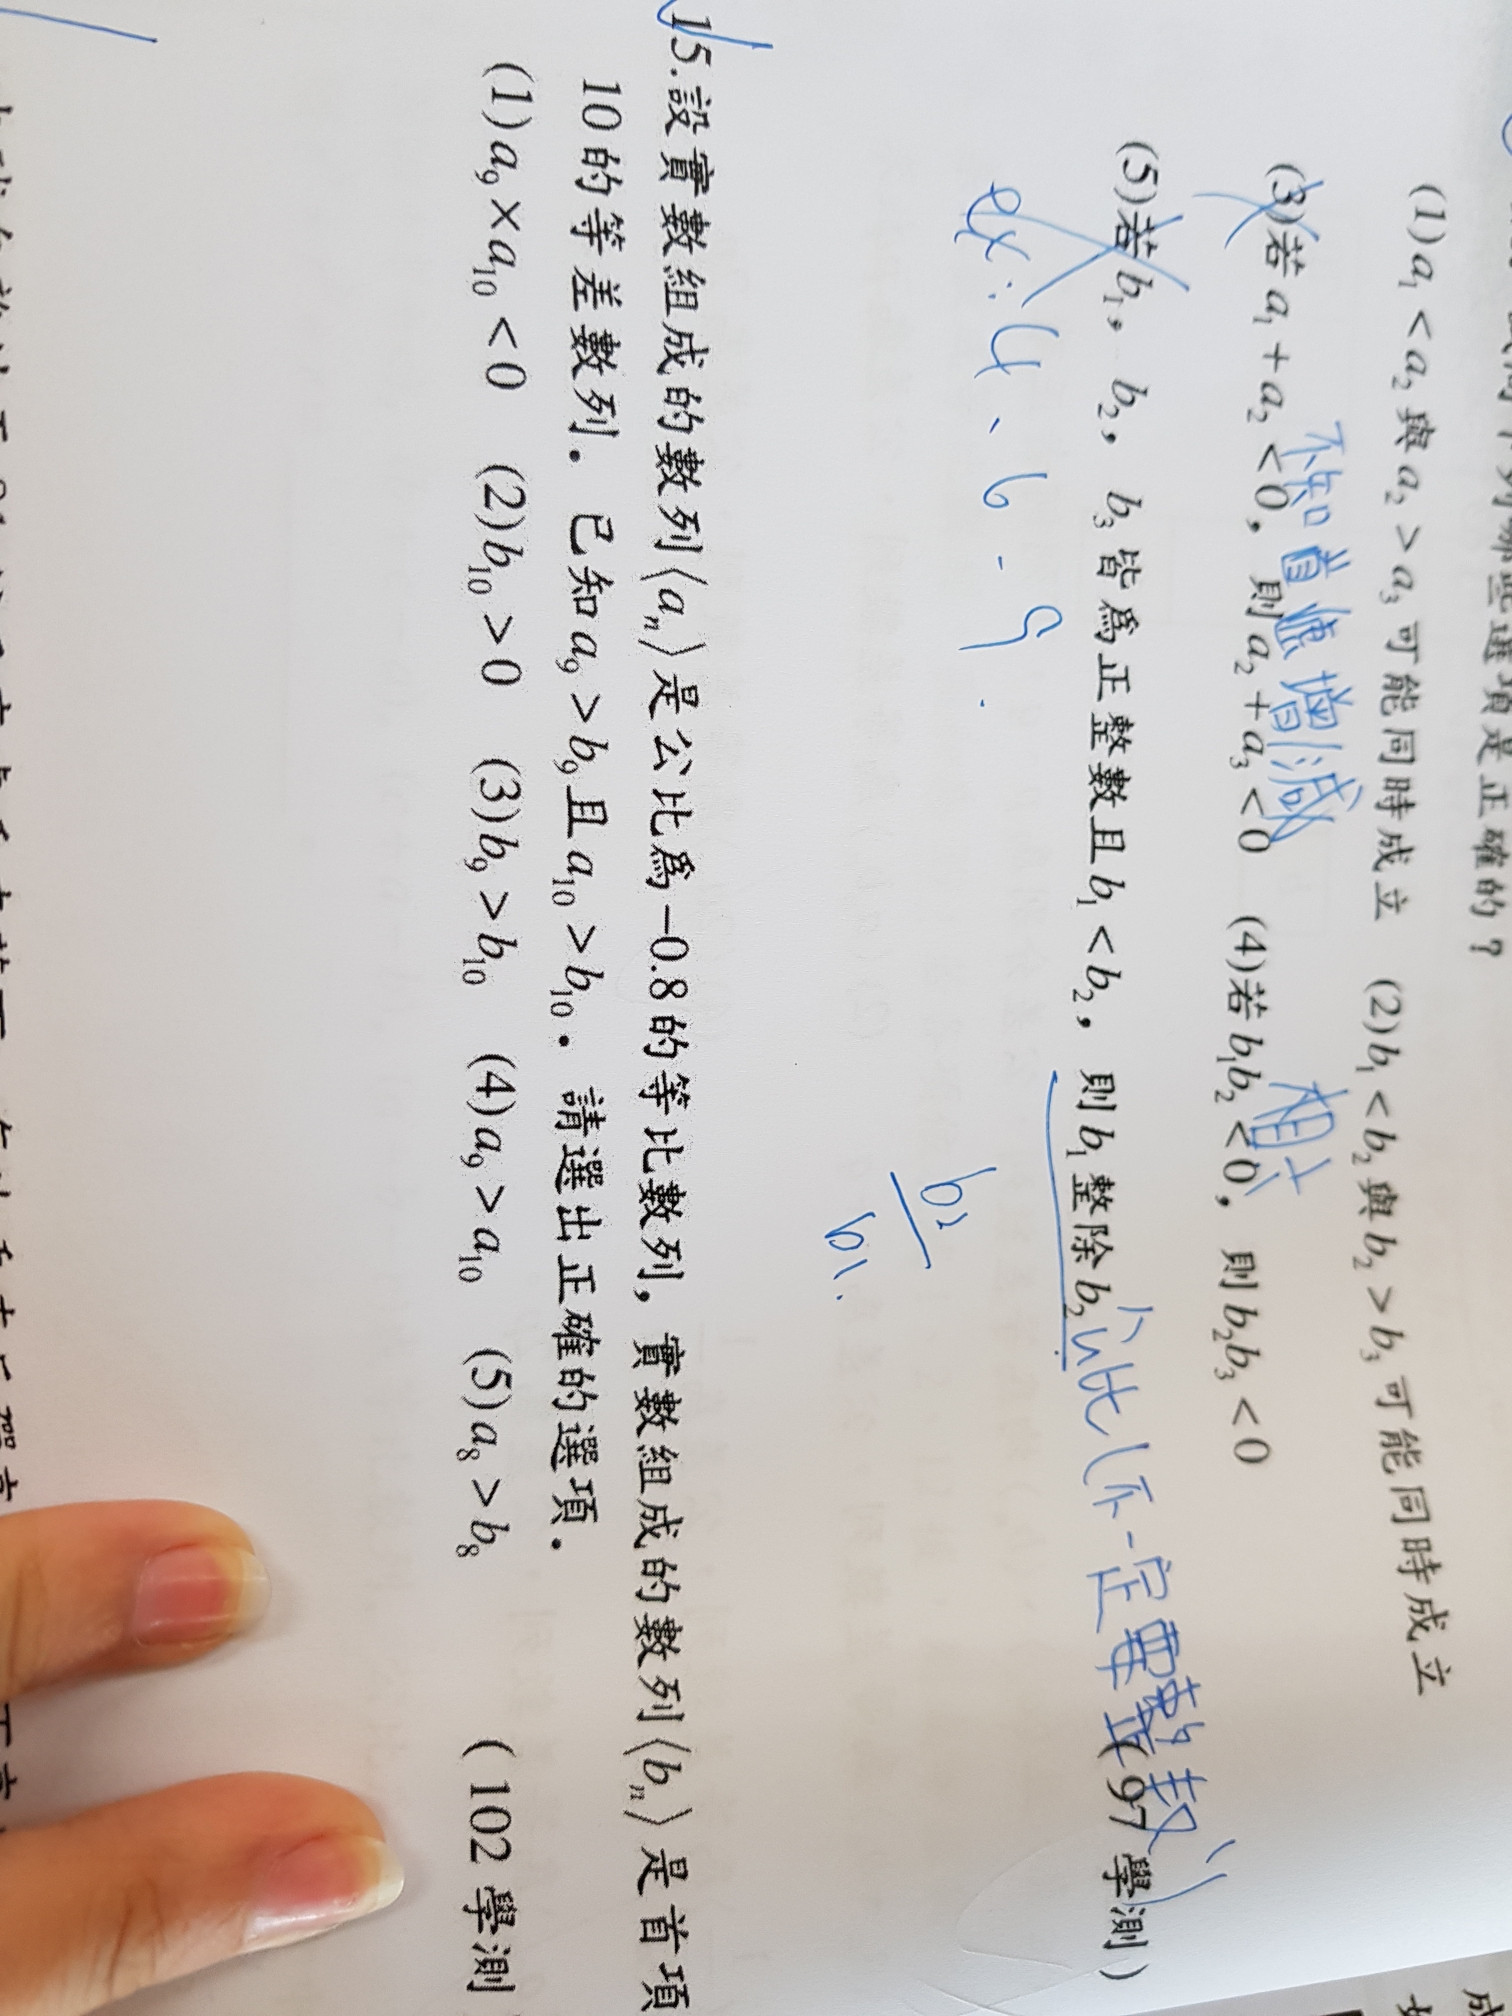 下列哪些選項是正確的？
(1)a₁<a₂與a₂>a₃可能同時成立 (2)b₁<b₂與b₂>b₃可能同時成立
不知道 增減 相
(3)若a₁+a₂<0，則a₂+a₃<0 (4)若b₁b₂<0，則b₂b₃<0
(5)若b₁，b₂，b₃皆為正整數且b₁<b₂，則b₁整除b₂ (97 學測)
公比(不一定要整數)
ex: 4、6、9.
b₂
b₁.
15.設實數組成的數列⟨aₙ⟩是公比為−0.8的等比數列，實數組成的數列⟨bₙ⟩是首項
10的等差數列．已知a₉>b₉且a₁₀>b₁₀．請選出正確的選項．
(1)a₉×a₁₀<0 (2)b₁₀>0 (3)b₉>b₁₀ (4)a₉>a₁₀ (5)a₈>b₈ (102 學測